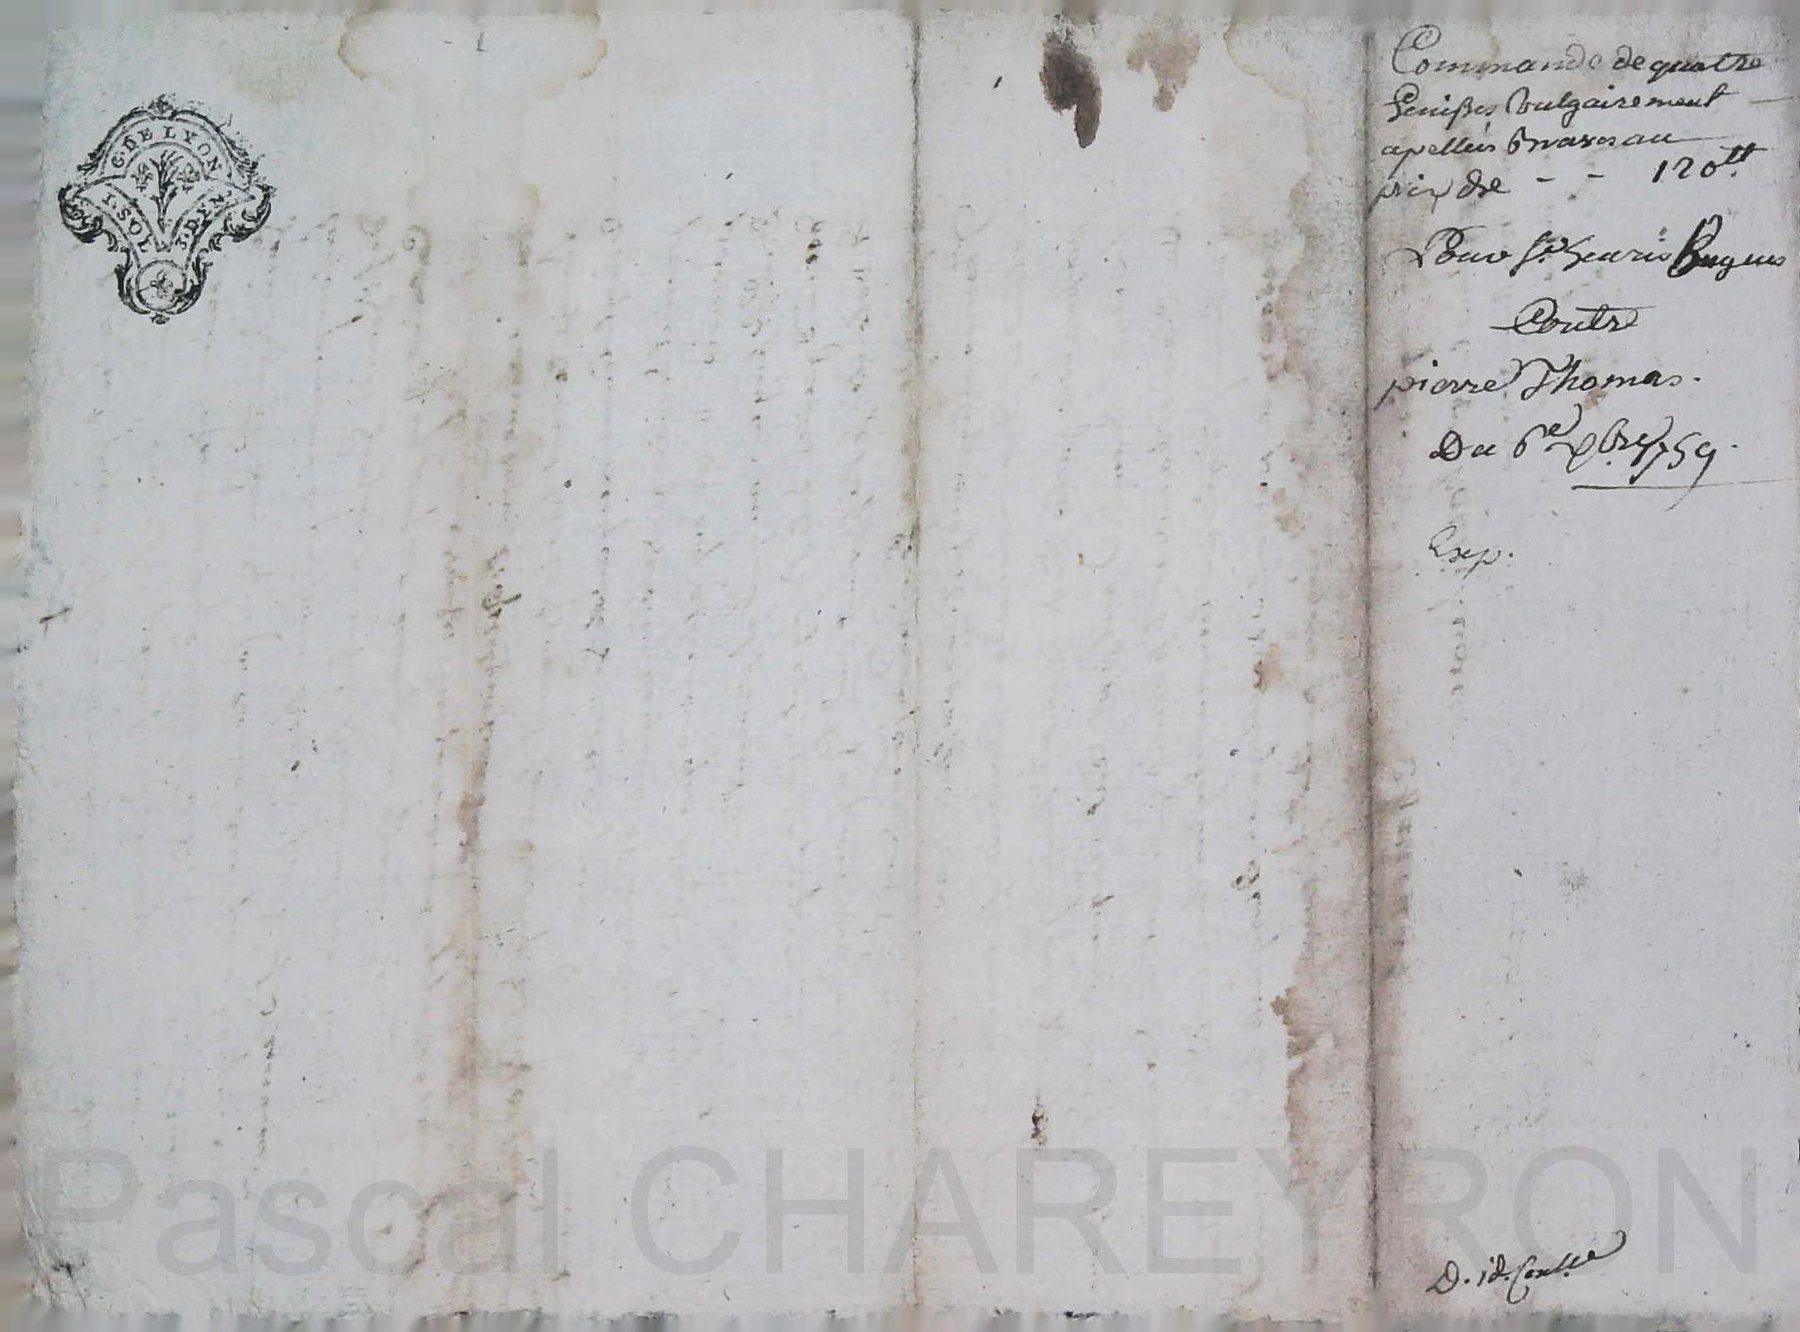 G. DE LYON
1. SOL 3. DEN.
Commande de quatre
Genisses vulgairement
apellés au
prix de - - 120ᵗᵗ
Pour Sʳ
Contre
pierre Thomas.
Du 6ᵉ Xbre 1759.
Exp.
D. id.
Pascal CHAREYRON